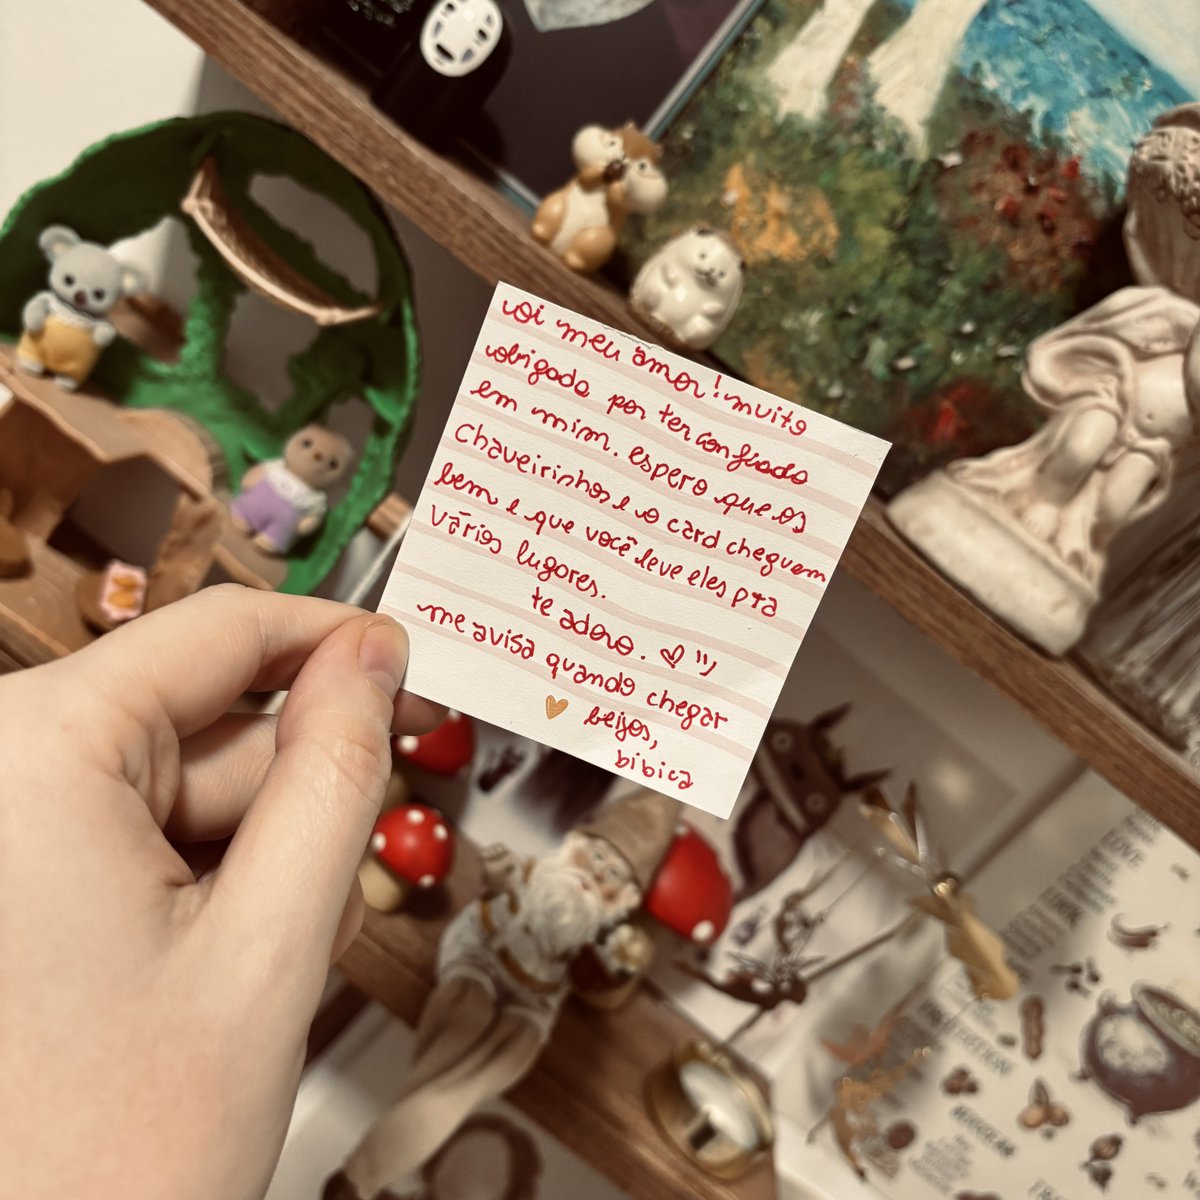 oi meu amor! muito
obrigada por ter confiado
em mim. espero que os
chaveirinhos e o card cheguem
bem e que você leve eles pra
vários lugares.
te adoro. ♡ "))
me avisa quando chegar
beijos,
bibica
LOVE
PROTECTION